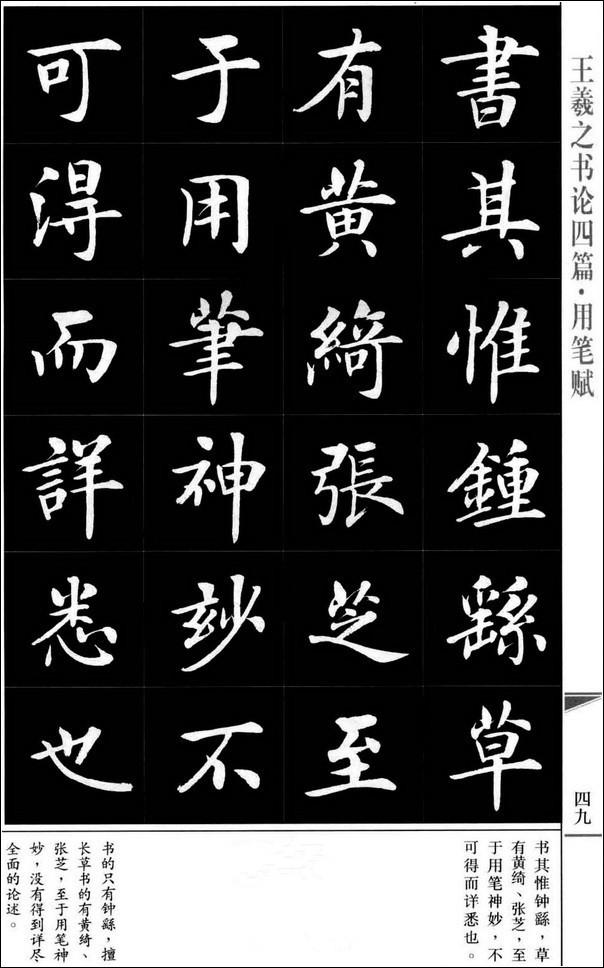 王羲之书论四篇·用笔赋
四九
書其惟鍾繇草
有黄綺張芝至
于用筆神妙不
可得而詳悉也
书其惟钟繇，草
有黄绮、张芝，至
于用笔神妙，不
可得而详悉也。
书的只有钟繇，擅
长草书的有黄绮、
张芝，至于用笔神
妙，没有得到详尽
全面的论述。